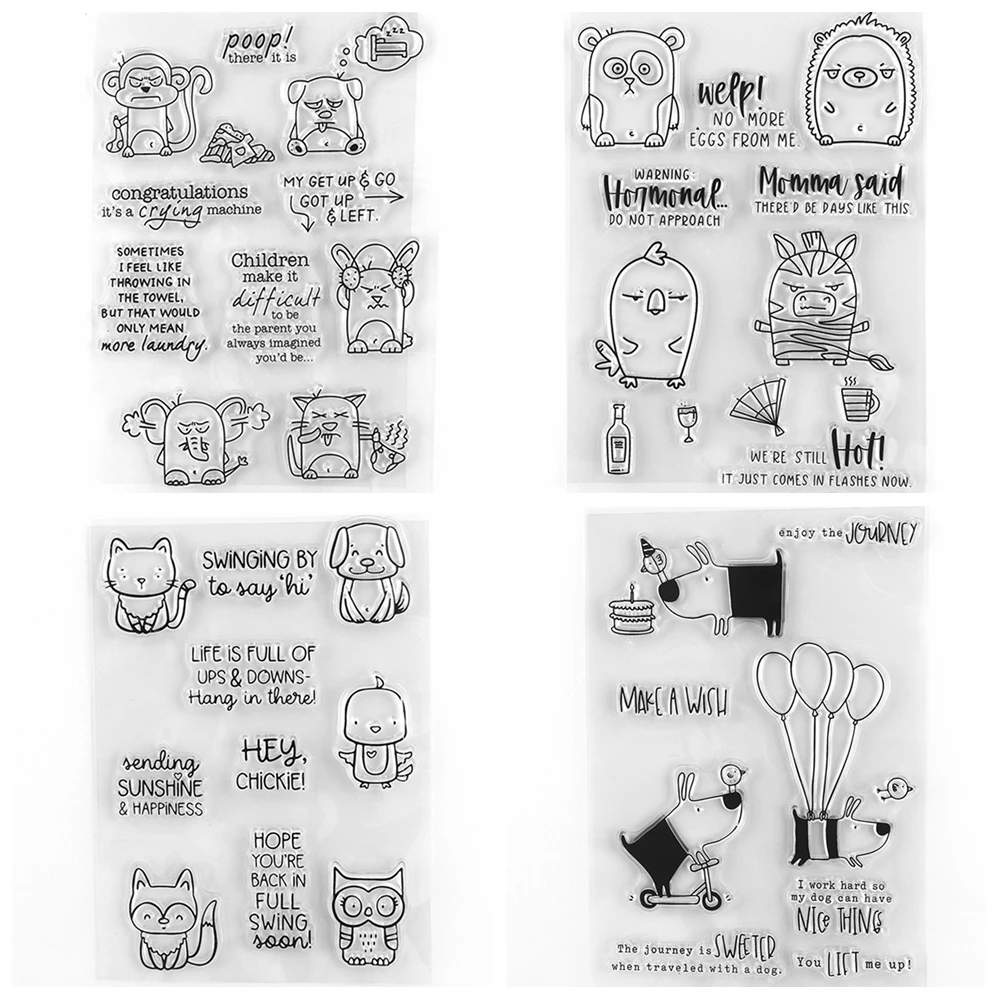 poop!
there it is
zzz
congratulations
it's a crying machine
MY GET UP & GO
GOT UP
& LEFT.
SOMETIMES
I FEEL LIKE
THROWING IN
THE TOWEL,
BUT THAT WOULD
ONLY MEAN
more laundry.
Children
make it
difficult
to be
the parent you
always imagined
you'd be...
welp!
NO MORE
EGGS FROM ME.
WARNING:
Hormonal...
DO NOT APPROACH
Momma said
THERE'D BE DAYS LIKE THIS
WE'RE STILL Hot!
IT JUST COMES IN FLASHES NOW.
SWINGING BY
to say 'hi'
LIFE IS FULL OF
UPS & DOWNS-
Hang in there!
sending
SUNSHINE
& HAPPINESS
HEY,
CHICKIE!
HOPE
YOU'RE
BACK IN
FULL
SWING
soon!
enjoy the JOURNEY
MAKE A WISH
I work hard so
my dog can have
NICE THINGS
The journey is SWEETER
when traveled with a dog.
You LIFT me up!